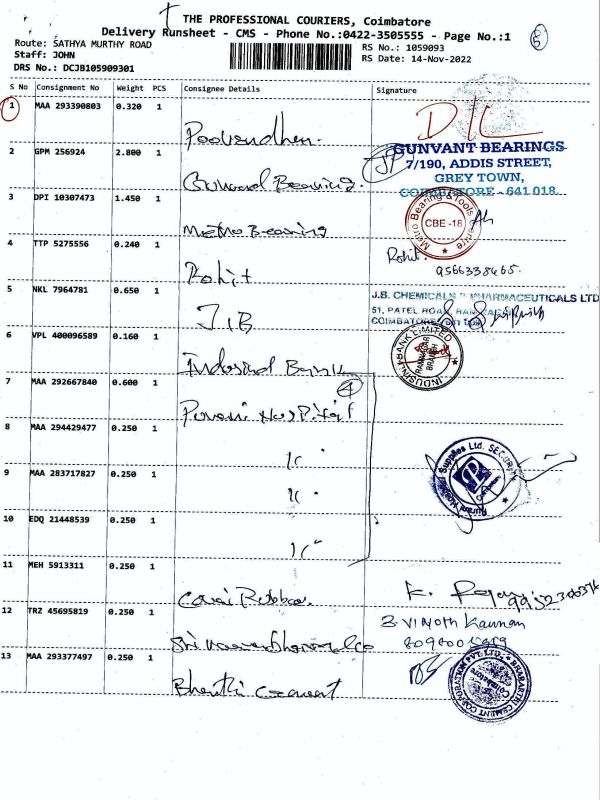 THE PROFESSIONAL COURIERS, Coimbatore
Delivery Runsheet - CMS - Phone No.:0422-3505555 - Page No.:1
Route: SATHYA MURTHY ROAD
RS No.: 1059093
Staff: JOHN
RS Date: 14-Nov-2022
DRS No.: DCJB105909301
S No Consignment No Weight PCS Consignee Details Signature
1 MAA 293390803 0.320 1
D/C
2 GPM 256924 2.800 1 Gunvand Bearing.
GUNVANT BEARINGS
7/190, ADDIS STREET,
GREY TOWN,
COIMBATORE - 641 018.
3 DPI 10307473 1.450 1 Metro Bearing
Metro Bearing & Tools Centre
CBE -18
4 TTP 5275556 0.240 1 Rohit
Rohit.
9566338465.
5 NKL 7964781 0.650 1 J.B
J.B. CHEMICALS & PHARMACEUTICALS LTD
51, PATEL ROAD,
COIMBATORE
6 VPL 400096589 0.160 1 Indusind Bank
INDUSIND BANK LIMITED
RAMNAGAR
BRANCH
7 MAA 292667840 0.600 1 Hospital
4
8 MAA 294429477 0.250 1 "
9 MAA 283717827 0.250 1 "
Supplies Ltd.
10 EDQ 21448539 0.250 1 "
11 MEH 5913311 0.250 1 Covai Rubber.
K.
12 TRZ 45695819 0.250 1
S. Vinoth Kannan
13 MAA 293377497 0.250 1 Bharathi Cement
BHARATHI CEMENT CORPORATION PVT. LTD.
Coimbatore